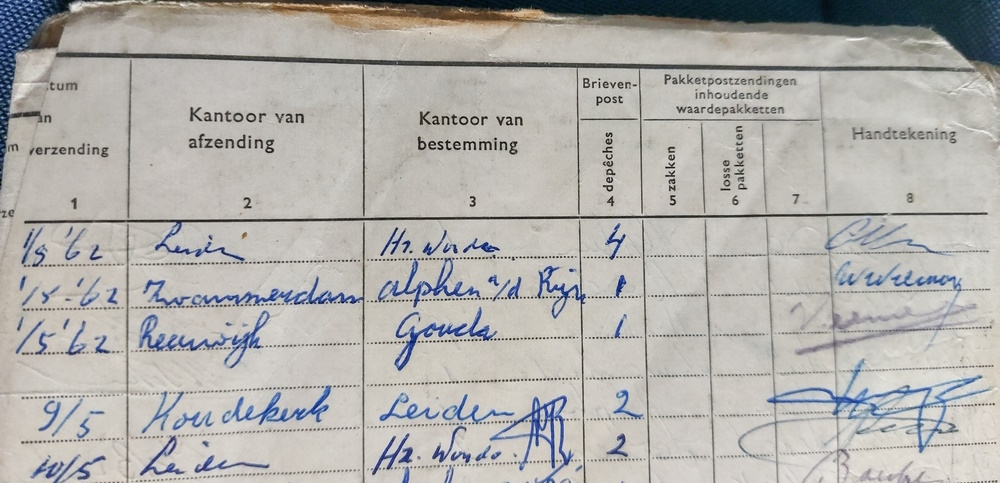 tum
an
verzending
Kantoor van
afzending
Kantoor van
bestemming
Brieven-
post
depêches
Pakketpostzendingen
inhoudende
waardepakketten
zakken
losse
pakketten
Handtekening
1 2 3 4 5 6 7 8
1/5 '62 Leiden Hz. 4
1/5-'62 Zwammerdam alphen a/d Rijn 1
1/5 '62 Reeuwijk Gouda 1
9/5 Koudekerk Leiden 2
10/5 Leiden Hz. 2